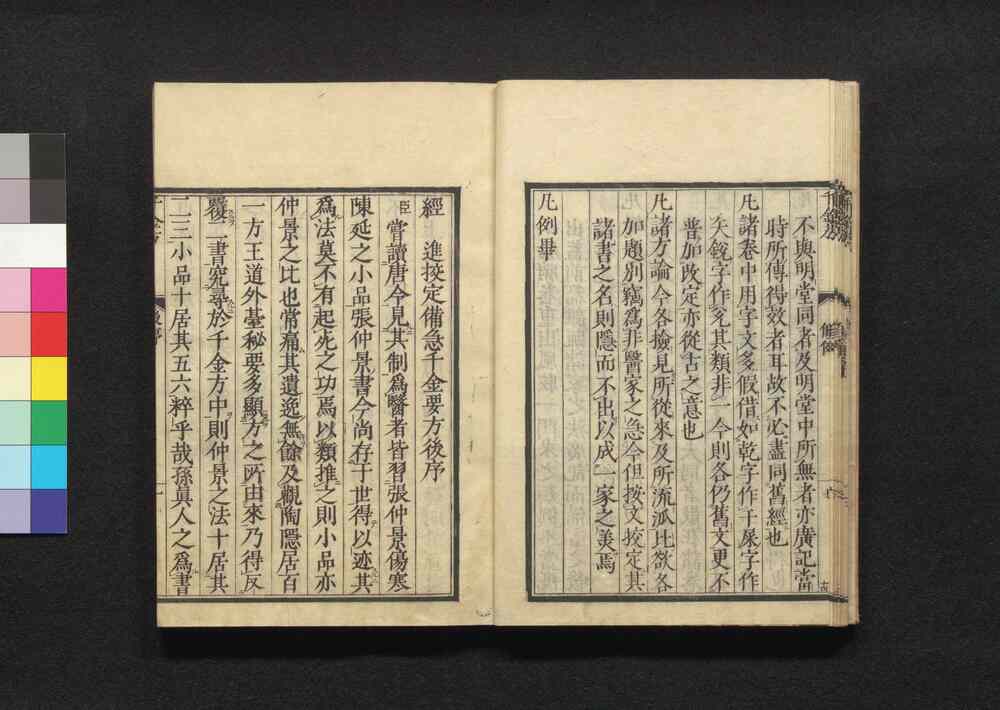 不與明堂同者及明堂中所無者亦廣記當
時所傳得效者耳故不必盡同舊經也
凡諸卷中用字文多假借如乾字作干屎字作
矢銳字作兊其類非一今則各仍舊文更不
普加改定亦從古之意也
凡諸方論今各撿見所從來及所流派比欲各
加題別竊爲非醫家之急今但按文挍定其
諸書之名則隱而不出以成一家之美焉
凡例畢
經進挍定備急千金要方後序
臣嘗讀唐令見其制爲醫者皆習張仲景傷寒
陳延之小品張仲景書今尚存于世得以迹其
爲法莫不有起死之功焉以類推之則小品亦
仲景之比也常痛其遺逸無餘及觀陶隱居百
一方王道外臺秘要多顯方之所由來乃得反
覆二書究尋於千金方中則仲景之法十居其
二三小品十居其五六粹乎哉孫眞人之爲書